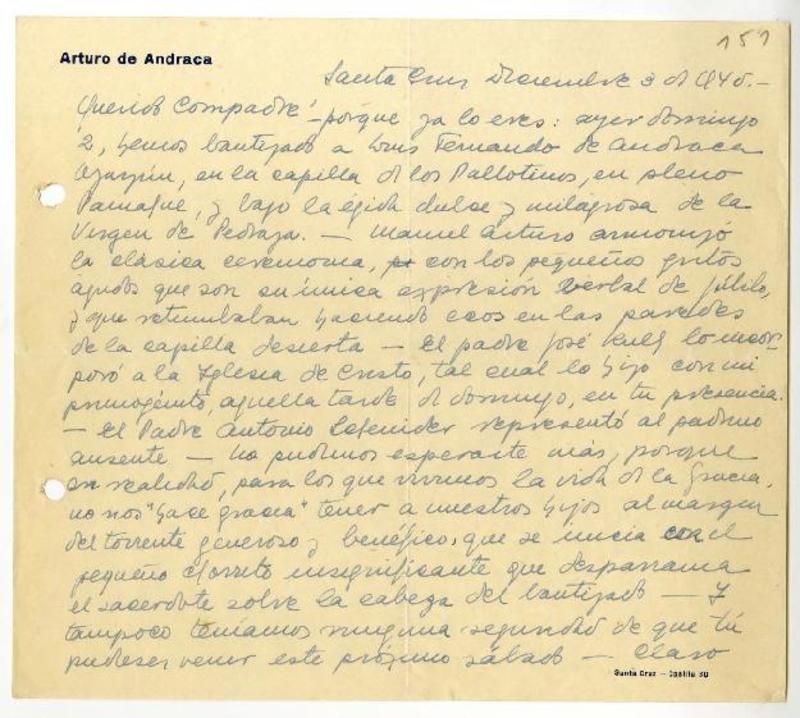 151
Arturo de Andraca
Santa Cruz Diciembre 3 de 1945.-
Querido Compadre - porque ya lo eres: ayer domingo
2, hemos bautizado a Luis Fernando de Andraca
Oyarzún, en la capilla de los Pallotinos, en pleno
Panafue, y bajo la égida dulce y milagrosa de la
Virgen de Pedraza. - Manuel Arturo armonizó
la clásica ceremonia, con los pequeños gritos
agudos que son su única expresión verbal de júbilo,
y que retumbaban haciendo ecos en las paredes
de la capilla desierta - El padre José Kull lo incor-
poró a la Iglesia de Cristo, tal cual lo hizo con mi
primogénito, aquella tarde de domingo, en tu presencia.
- El Padre Antonio representó al padrino
ausente - No pudimos esperarte más, porque
en realidad, para los que vivimos la vida de la Gracia,
no nos "hace gracia" tener a nuestros hijos al margen
del torrente generoso y benéfico, que se inicia con el
pequeño chorrito insignificante que desparrama
el sacerdote sobre la cabeza del bautizado - Y
tampoco teníamos ninguna seguridad de que tú
pudieses venir este próximo sábado - Claro
Santa Cruz - Casilla 80